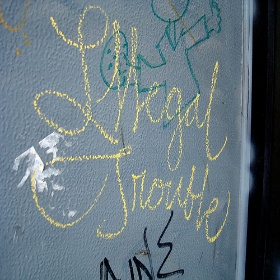 Illegal
Trouble